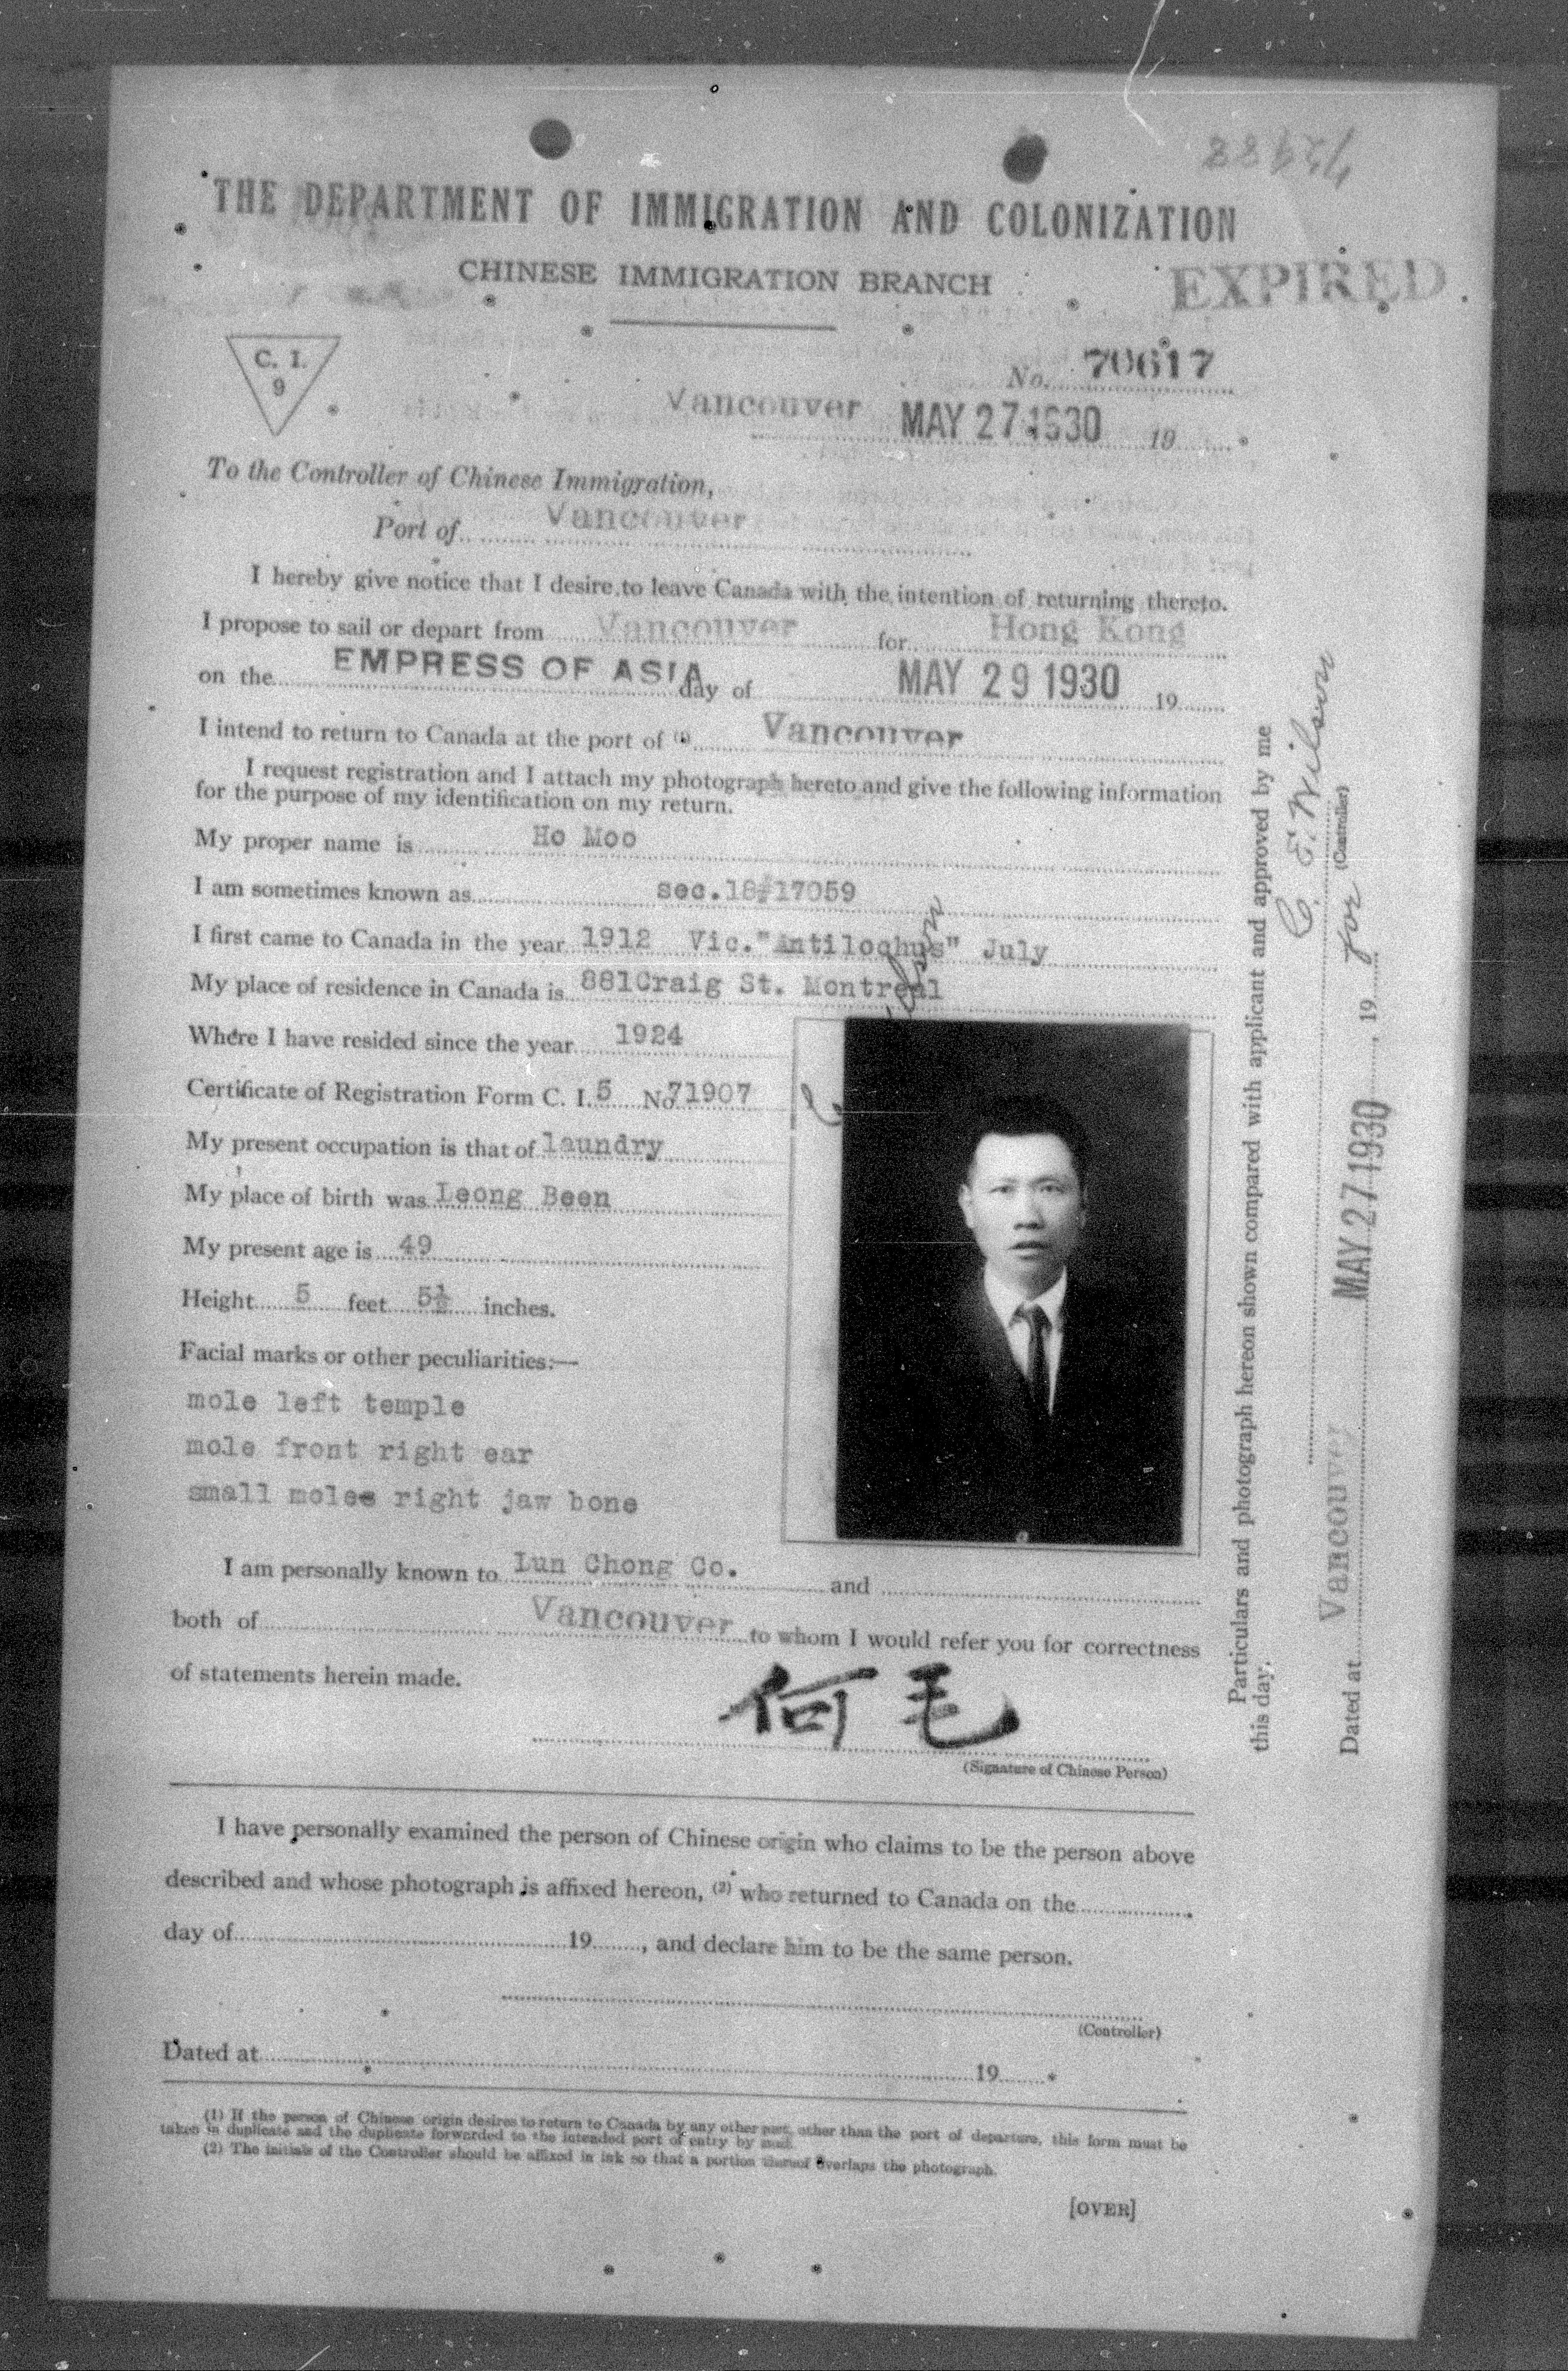 THE DEPARTMENT OF IMMIGRATION AND COLONIZATION
CHINESE IMMIGRATION BRANCH
EXPIRED
C. I.
9
No. 70617
Vancouver MAY 27 1930 19
To the Controller of Chinese Immigration,
Port of Vancouver
I hereby give notice that I desire to leave Canada with the intention of returning thereto.
I propose to sail or depart from Vancouver for Hong Kong
on the EMPRESS OF ASIA day of MAY 29 1930 19
I intend to return to Canada at the port of (1) Vancouver
I request registration and I attach my photograph hereto and give the following information
for the purpose of my identification on my return.
My proper name is Ho Moo
I am sometimes known as sec.18#17059
I first came to Canada in the year 1912 Vic."Antilochus" July
My place of residence in Canada is 881Craig St. Montreal
Where I have resided since the year 1924
Certificate of Registration Form C. I. 5 No 71907
My present occupation is that of laundry
My place of birth was Leong Been
My present age is 49
Height 5 feet 5½ inches.
Facial marks or other peculiarities:—
mole left temple
mole front right ear
small moles right jaw bone
I am personally known to Lun Chong Co. and
both of Vancouver to whom I would refer you for correctness
of statements herein made.
何毛
(Signature of Chinese Person)
I have personally examined the person of Chinese origin who claims to be the person above
described and whose photograph is affixed hereon, (2) who returned to Canada on the
day of 19 , and declare him to be the same person.
(Controller)
Dated at 19
(1) If the person of Chinese origin desires to return to Canada by any other port, other than the port of departure, this form must be
taken in duplicate and the duplicate forwarded to the intended port of entry by mail.
(2) The initials of the Controller should be affixed in ink so that a portion thereof overlaps the photograph.
[OVER]
Particulars and photograph hereon shown compared with applicant and approved by me
this day.
C. E. Wilson
for (Controller)
Dated at Vancouver MAY 27 1930 , 19